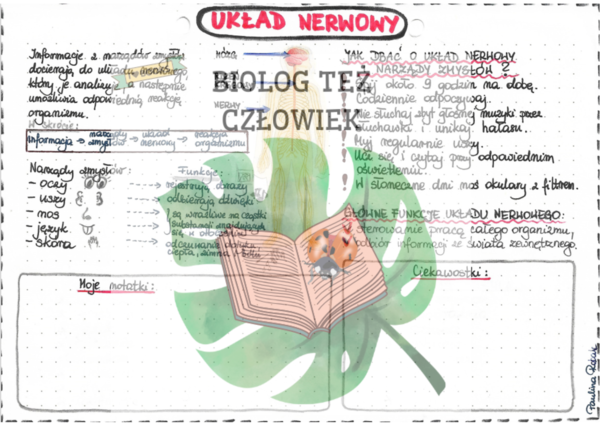 UKŁAD NERWOWY
Informacje z narządów zmysłów
docierają do układu nerwowego
który je analizuje, a następnie
umożliwia odpowiednią reakcję
organizmu.
W skrócie:
informacja → narządy zmysłów → układ nerwowy → reakcja organizmu
Narządy zmysłów:
Funkcje:
- oczy
rejestrują obrazy
- uszy
odbierają dźwięki
- nos
- język
są wrażliwe na cząstki
substancji znajdujących
się w
- skóra
odczuwanie dotyku,
ciepła, zimna i bólu
MÓZG
NERWY
BIOLOG TEŻ
CZŁOWIEK
JAK DBAĆ O UKŁAD NERWOWY
I NARZĄDY ZMYSŁÓW?
około 9 godzin na dobę.
Codziennie odpoczywaj.
Nie słuchaj zbyt głośnej muzyki przez
słuchawki i unikaj hałasu.
Myj regularnie uszy.
Ucz się i czytaj przy odpowiednim
oświetleniu.
W słoneczne dni noś okulary z filtrem.
GŁÓWNE FUNKCJE UKŁADU NERWOWEGO:
sterowanie pracą całego organizmu,
odbiór informacji ze świata zewnętrznego.
Moje notatki:
Ciekawostki:
Paulina